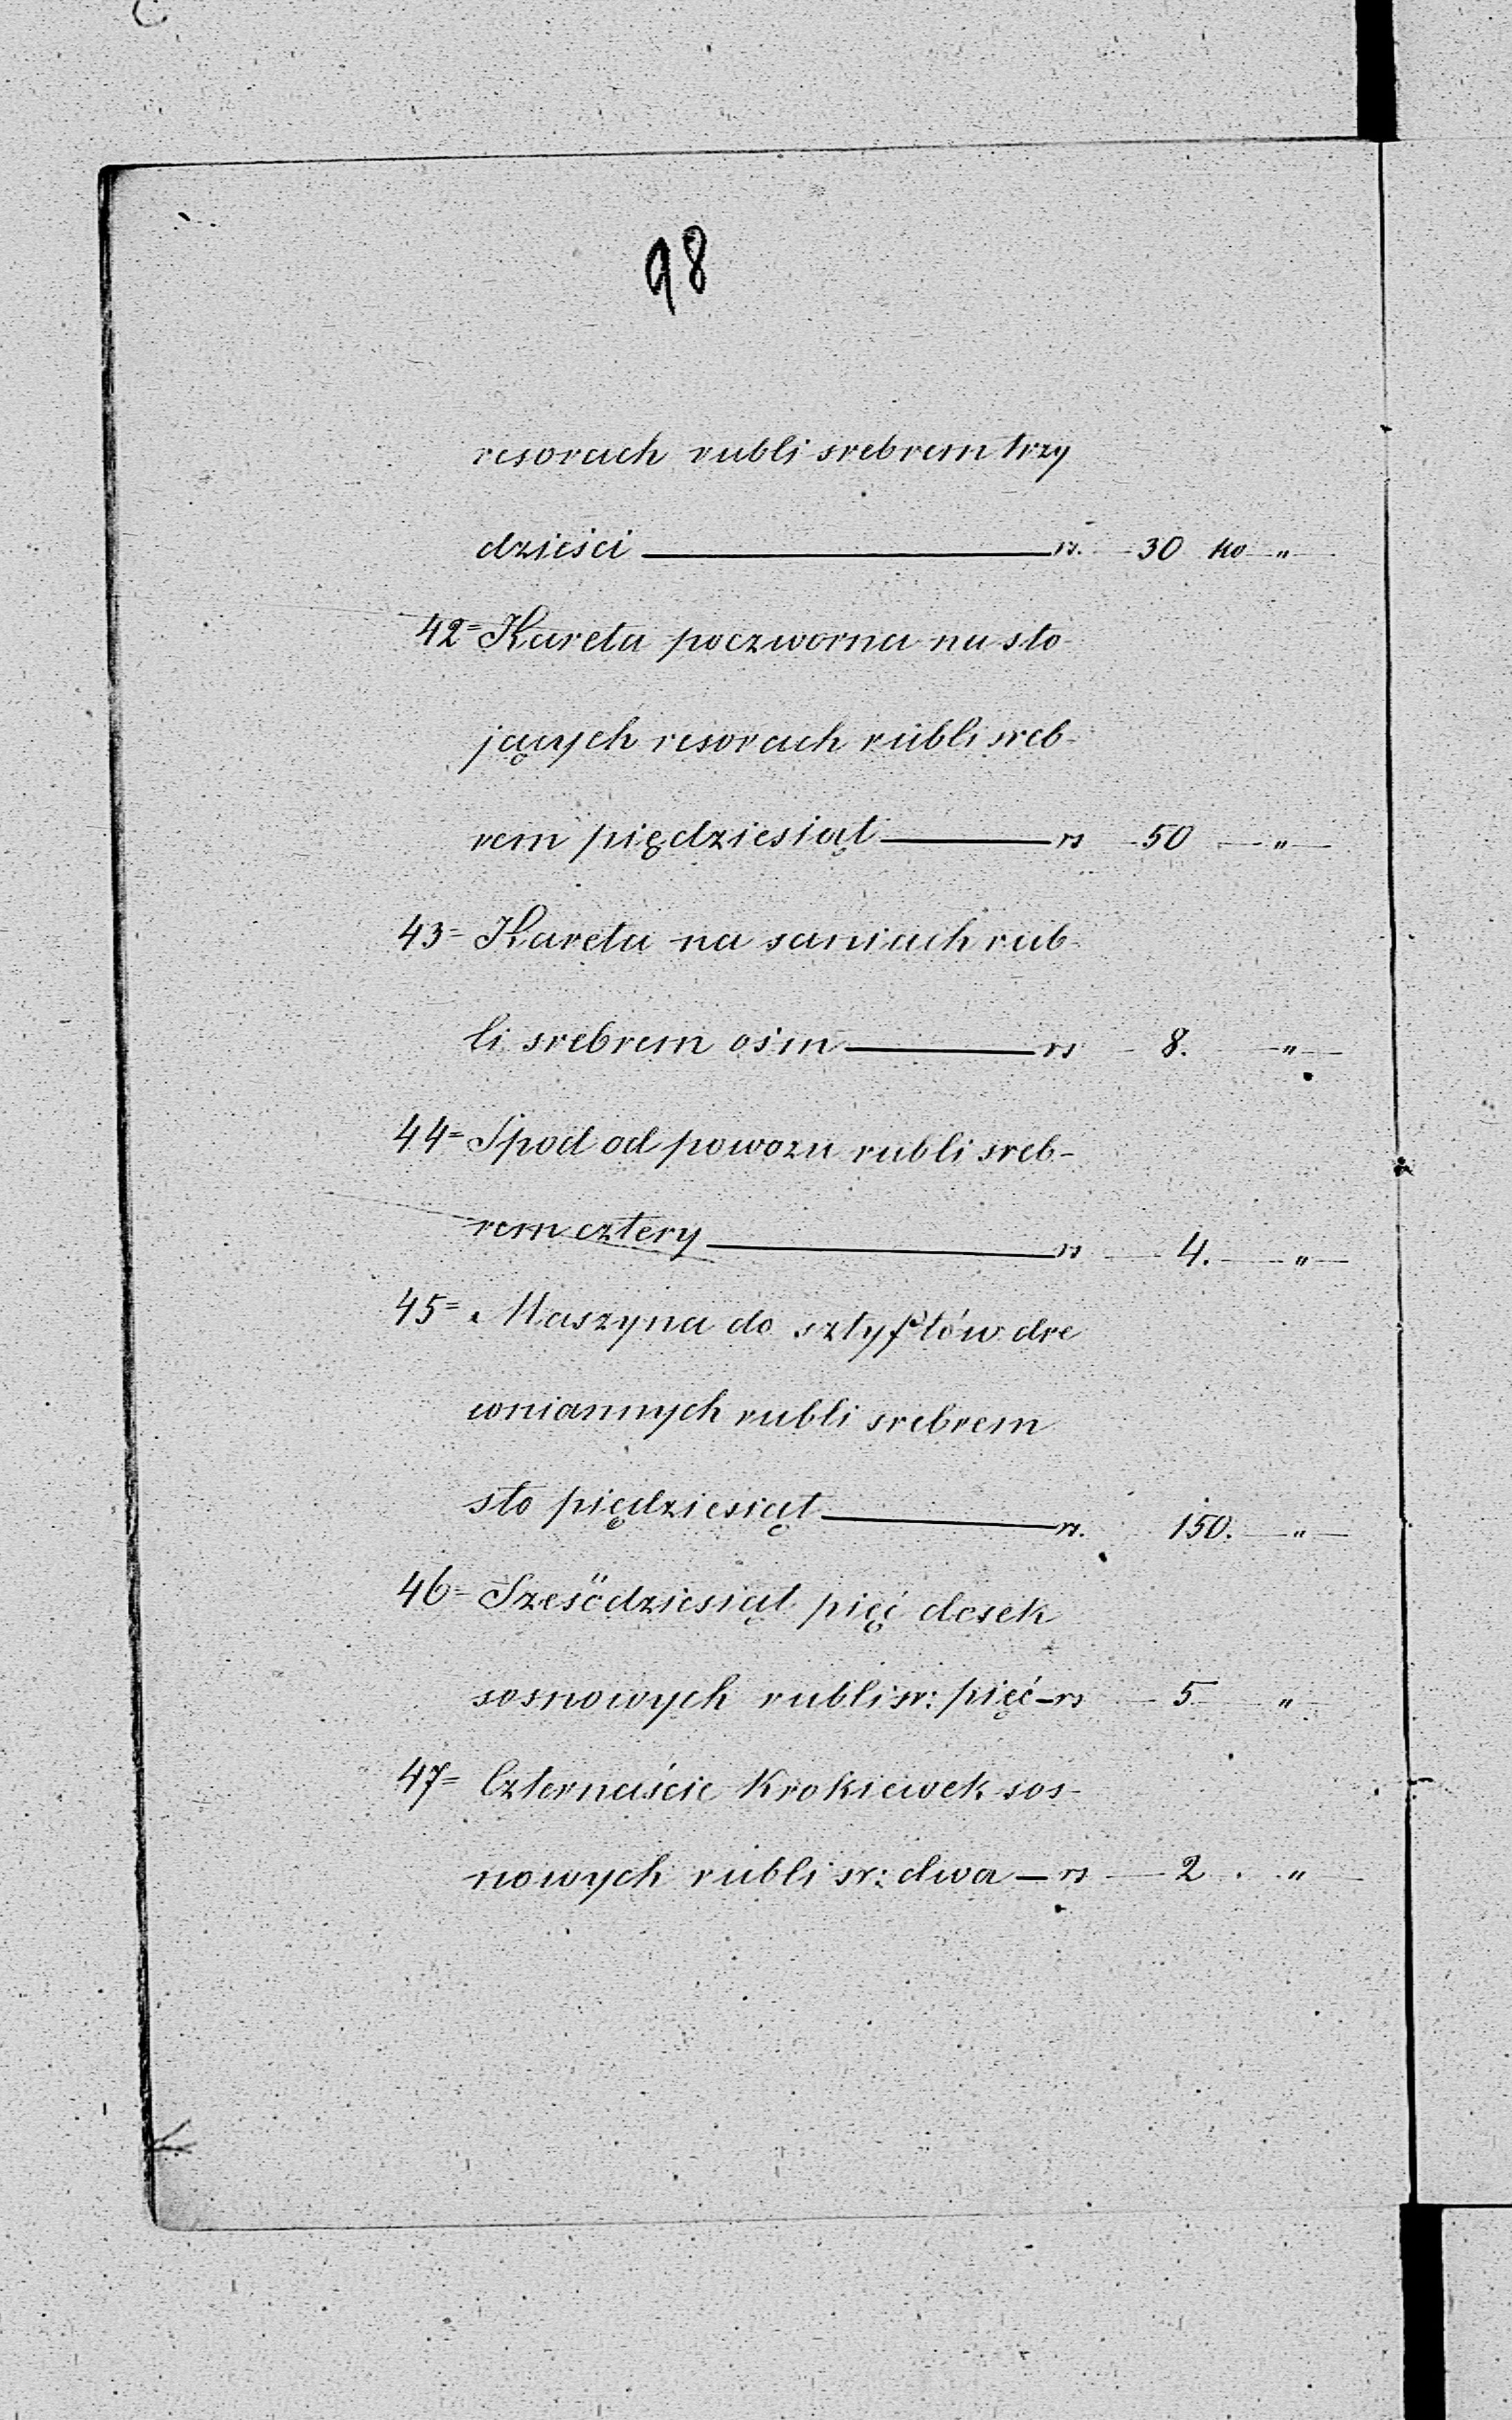 98
resorach rubli srebrem trzy
dzieści — rs. — 30 ko — „ —
42= Kareta poczworna na sto-
jących resorach rubli sreb-
rem piędziesiąt — rs — 50 — „ —
43= Kareta na saniach rub-
li srebrem ośm — rs — 8. — „ —
44= Spod od powozu rubli sreb-
rem cztery — rs — 4. — „ —
45= Maszyna do sztyftów dre
wniannych rubli srebrem
sto piędziesiąt — rs. 150. — „ —
46= Sześćdziesiąt pięć desek
sosnowych rubli sr: pięć — rs — 5 — „ —
47= Czternaście Krokiewek sos-
nowych rubli sr: dwa — rs — 2 . — „ —